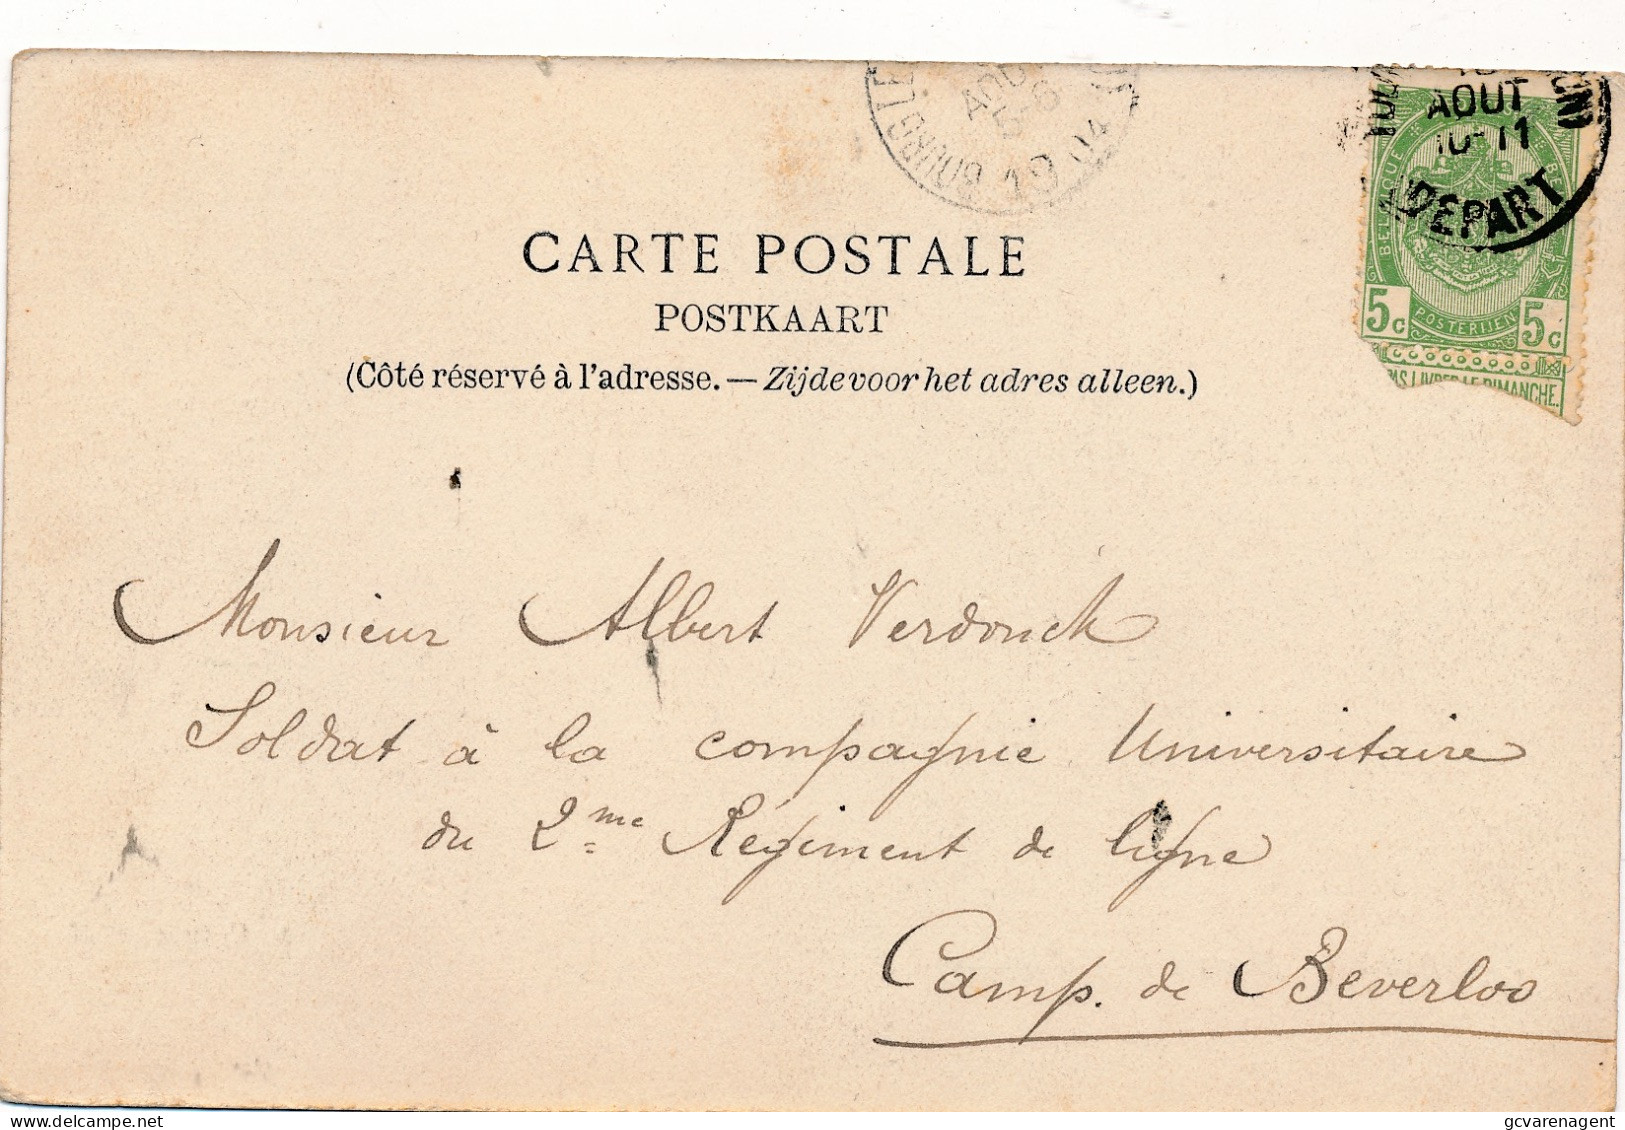 AOUT
5-6
19 04
AOUT
10-11
DEPART
BELGIQUE
5c POSTERIJEN 5c
CARTE POSTALE
POSTKAART
(Côté réservé à l'adresse. — Zijde voor het adres alleen.)
Monsieur Albert Verdonck
Soldat à la compagnie Universitaire
du 2me Régiment de ligne
Camp. de Beverloo
delcampe.net
gcvarenagent